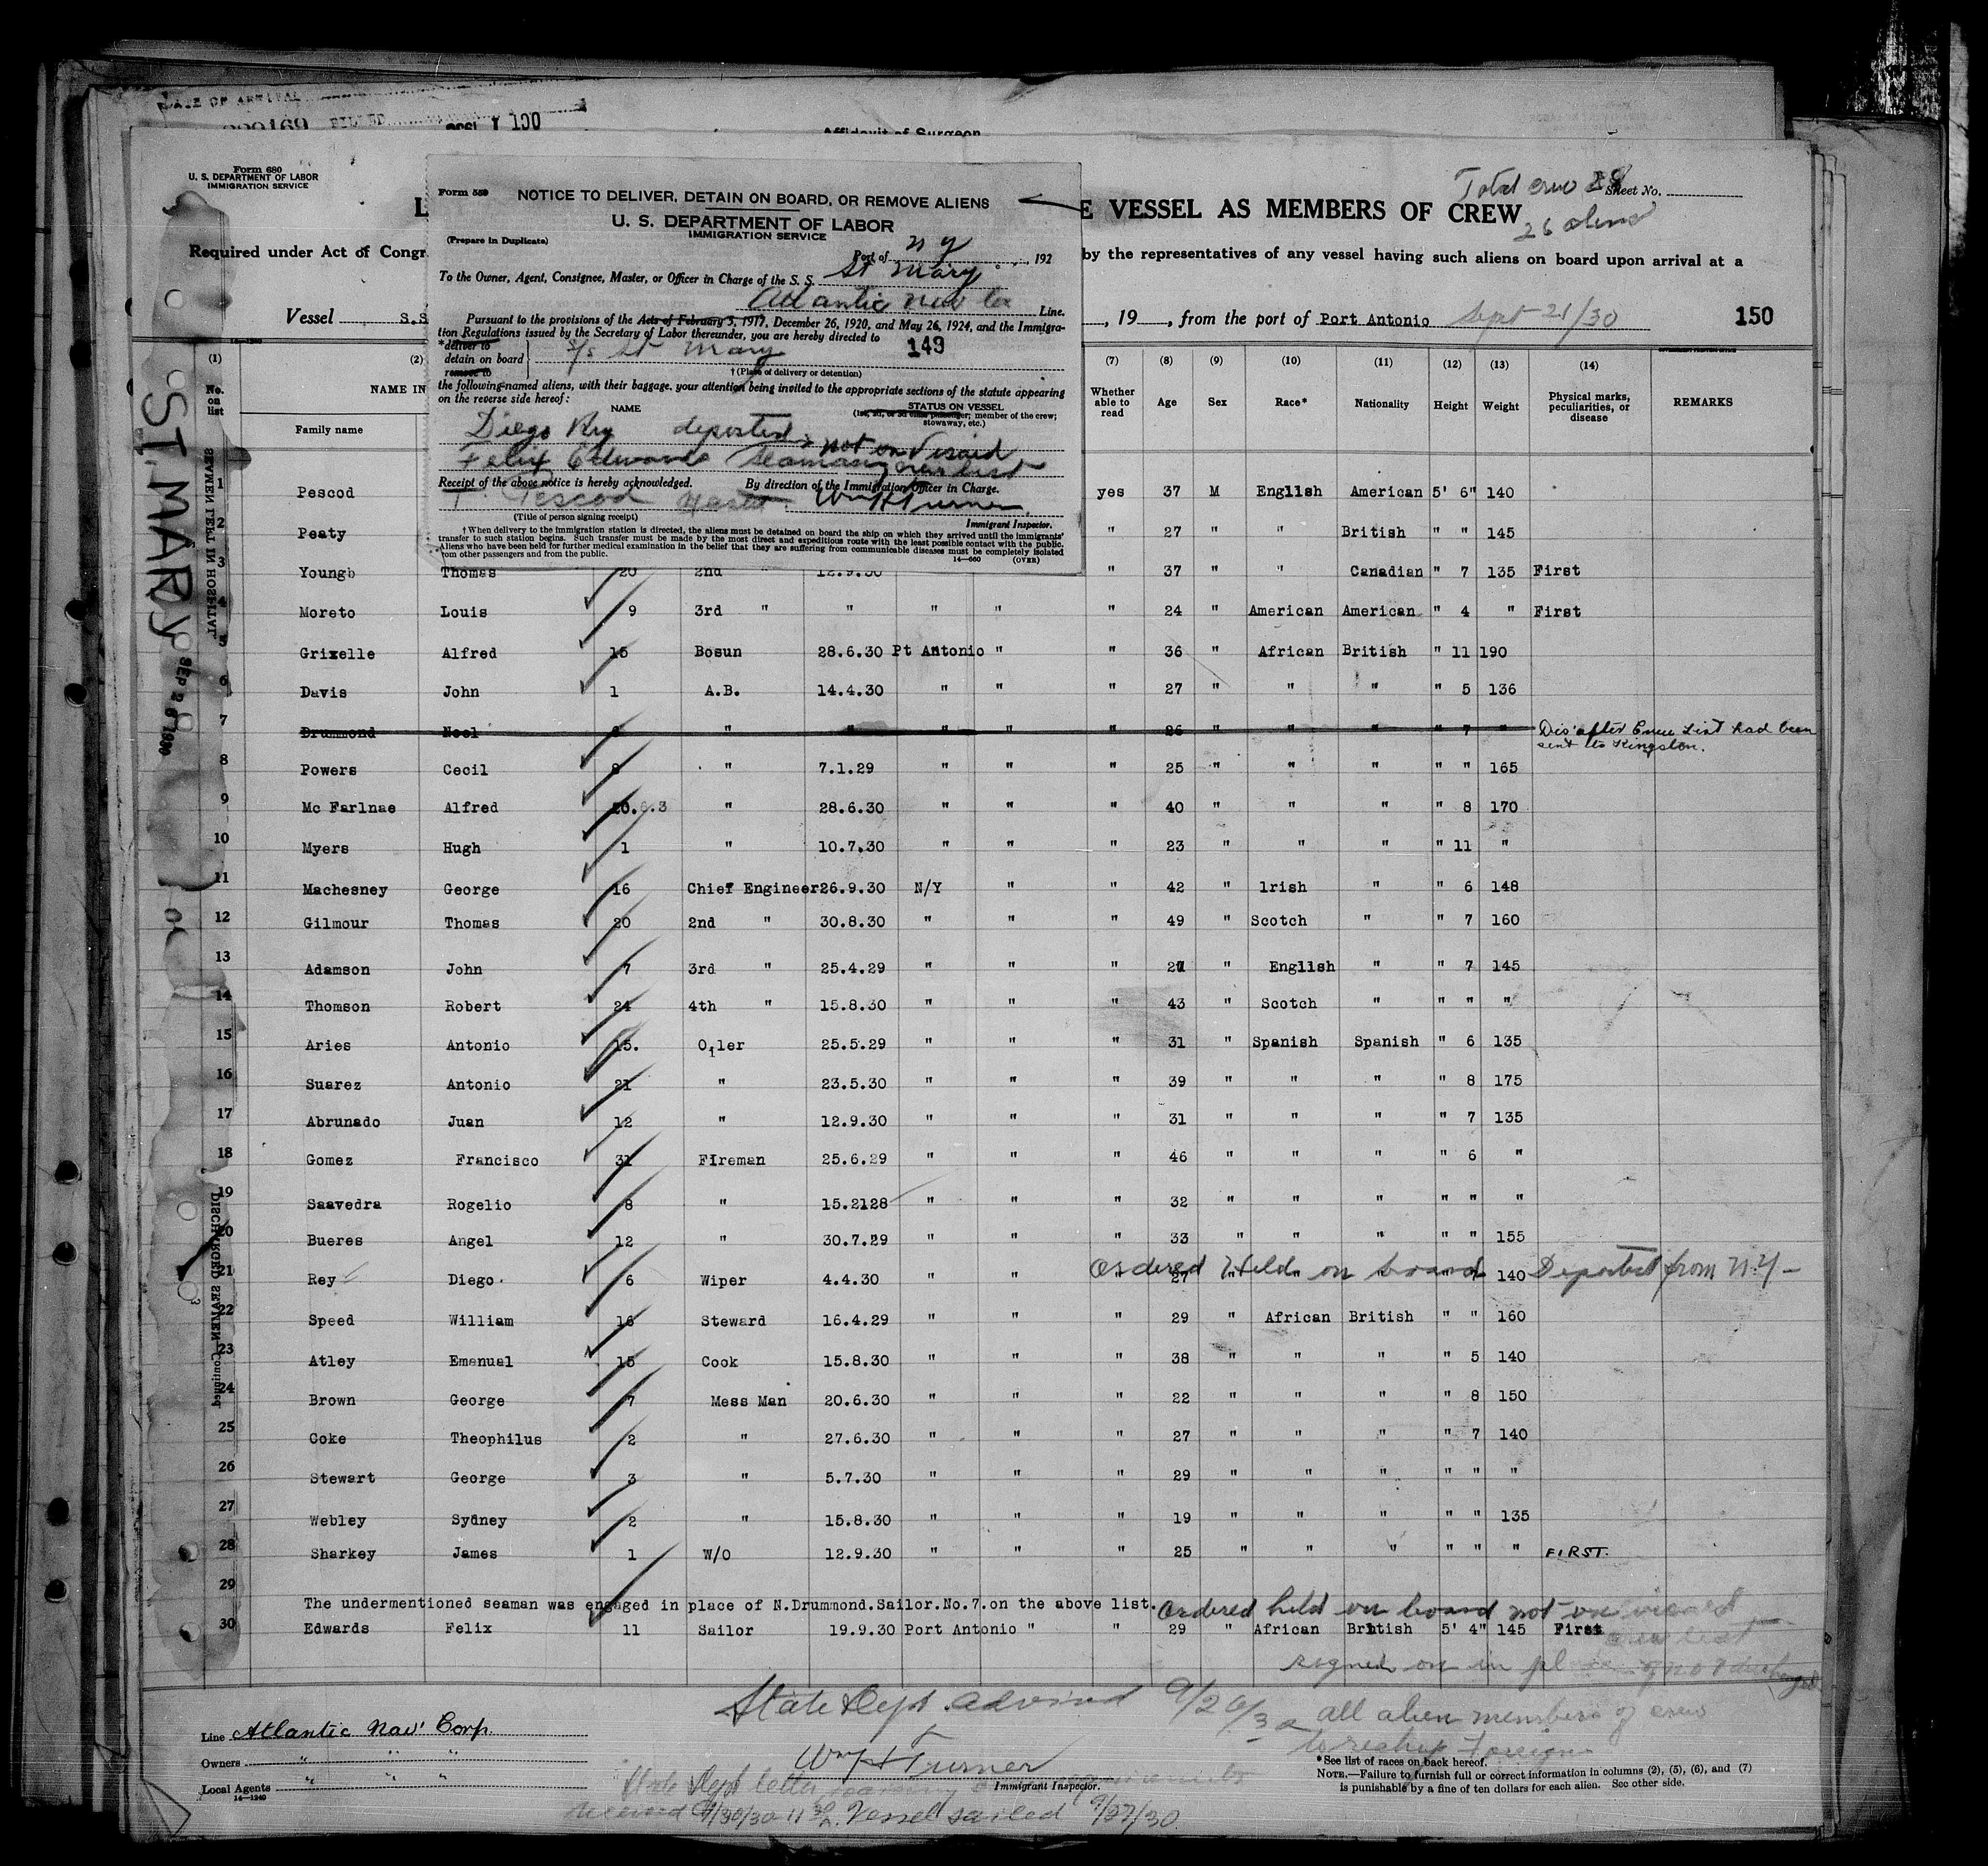 DATE OF ARRIVAL
Affidavit of Surgeon
Form 680
U. S. DEPARTMENT OF LABOR
IMMIGRATION SERVICE
Total crew 28 Sheet No.
26 aliens
E VESSEL AS MEMBERS OF CREW
Required under Act of Congr
by the representatives of any vessel having such aliens on board upon arrival at a
Vessel S.S
, 19 , from the port of Port Antonio Sept 21/30 150
Form 559
NOTICE TO DELIVER, DETAIN ON BOARD, OR REMOVE ALIENS
U. S. DEPARTMENT OF LABOR
IMMIGRATION SERVICE
(Prepare in Duplicate)
Port of N Y , 192
To the Owner, Agent, Consignee, Master, or Officer in Charge of the S. S. St Mary
Atlantic Nav Co Line.
Pursuant to the provisions of the Acts of February 5, 1917, December 26, 1920, and May 26, 1924, and the Immigra-
tion Regulations issued by the Secretary of Labor thereunder, you are hereby directed to 149
*deliver to
detain on board S/S St Mary
remove to
† (Place of delivery or detention)
the following-named aliens, with their baggage, your attention being invited to the appropriate sections of the statute appearing
on the reverse side hereof:
NAME STATUS ON VESSEL
member of the crew;
stowaway, etc.)
Diego Rey deported
Felix Edwards Seaman not on visaid crew list
Receipt of the above notice is hereby acknowledged. By direction of the Immigration Officer in Charge.
T. Pescod Master. Wm H Turner
(Title of person signing receipt) Immigrant Inspector.
† When delivery to the immigration station is directed, the aliens must be detained on board the ship on which they arrived until the immigrants'
transfer to such station begins. Such transfer must be made by the most direct and expeditious route with the least possible contact with the public.
Aliens who have been held for further medical examination in the belief that they are suffering from communicable diseases must be completely isolated
from other passengers and from the public.
14—660 (OVER)
(1) (2) (7) (8) (9) (10) (11) (12) (13) (14)
No. on list NAME IN Whether able to read Age Sex Race* Nationality Height Weight Physical marks, peculiarities, or disease REMARKS
Family name
1 Pescod yes 37 M English American 5' 6" 140
2 Peaty " 27 " " British " " 145
3 Youngb Thomas 20 2nd " 12.9.30 " 37 " " Canadian " 7 135 First
4 Moreto Louis 9 3rd " " " " " 24 " American American " 4 " First
5 Grixelle Alfred 15 Bosun 28.6.30 Pt Antonio " " 36 " African British " 11 190
6 Davis John 1 A.B. 14.4.30 " " " 27 " " " " 5 136
7 Drummond Noel " " " " " 26 " " " " 7 " Dis' after Crew List had been
sent to Kingston.
8 Powers Cecil 8 " 7.1.29 " " " 25 " " " " " 165
9 Mc Farlnae Alfred 20.6.3 " 28.6.30 " " " 40 " " " " 8 170
10 Myers Hugh 1 " 10.7.30 " " " 23 " " " " 11 "
11 Machesney George 16 Chief Engineer 26.9.30 N/Y " " 42 " lrish " " 6 148
12 Gilmour Thomas 20 2nd " 30.8.30 " " " 49 " Scotch " " 7 160
13 Adamson John 7 3rd " 25.4.29 " " " " English " " 7 145
14 Thomson Robert 24 4th " 15.8.30 " " " 43 " Scotch " " " "
15 Aries Antonio 15. Oiler 25.5.29 " " " 31 " Spanish Spanish " 6 135
16 Suarez Antonio 21 " 23.5.30 " " " 39 " " " " 8 175
17 Abrunado Juan 12 " 12.9.30 " " " 31 " " " " 7 135
18 Gomez Francisco 31 Fireman 25.6.29 " " " 46 " " " " 6 "
19 Saavedra Rogelio 8 " 15.2128 " " " 32 " " " " " "
20 Bueres Angel 12 " 30.7.29 " " " 33 " " " " " 155
Ordered Held on board Deported from N.Y-
21 Rey Diego. 6 Wiper 4.4.30 " " " 27 " " " " 7 140
22 Speed William 16 Steward 16.4.29 " " " 29 " African British " " 160
23 Atley Emanual 15 Cook 15.8.30 " " " 38 " " " " 5 140
24 Brown George 7 Mess Man 20.6.30 " " " 22 " " " " 8 150
25 Coke Theophilus 2 " 27.6.30 " " " 27 " " " " 7 140
26 Stewart George 3 " 5.7.30 " " " 29 " " " " " "
27 Webley Sydney 2 " 15.8.30 " " " 19 " " " " " 135
28 Sharkey James 1 W/O 12.9.30 " " " 25 " " " " " " FIRST.
29
The undermentioned seaman was engaged in place of N.Drummond.Sailor.No.7.on the above list. Ordered held on board not on visaed
30 Edwards Felix 11 Sailor 19.9.30 Port Antonio " " 29 " African British 5' 4" 145 First
crew list
signed on in place of no 7 discharged
State Dept. advised 9/26/30 all alien members of crew
to reship foreign
Line Atlantic Nav' Corp.
Owners " " "
Local Agents " " "
14—1240
Wm H Turner
Immigrant Inspector.
State Dept letter
received 9/30/30 11 30 A. Vessel sailed 9/27/30.
*See list of races on back hereof.
NOTE.—Failure to furnish full or correct information in columns (2), (5), (6), and (7)
is punishable by a fine of ten dollars for each alien. See other side.
ST. MARY
SEP 26 1930
SEAMEN LEFT IN HOSPITAL
DISCHARGED SEAMEN—Continued